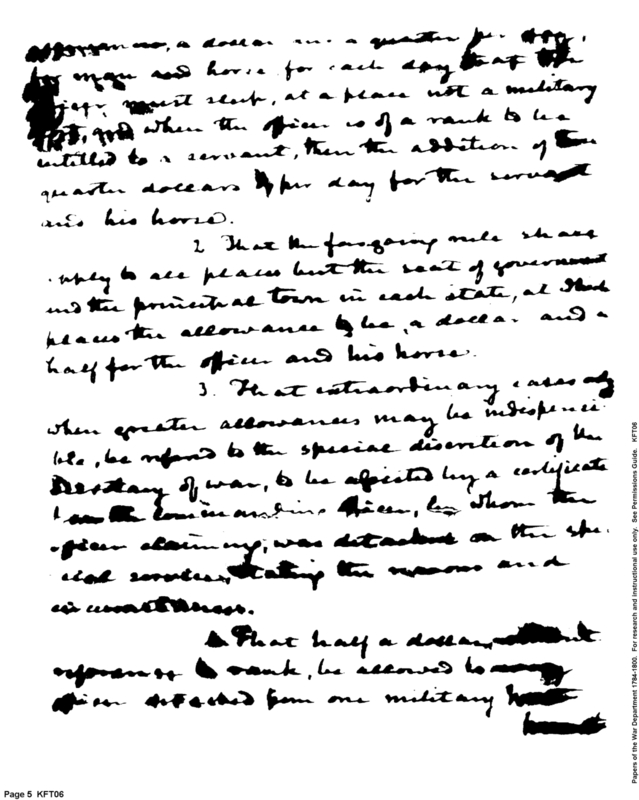 a dollar and a quarter per day,
for man and horse for each day that the
officer must sleep, at a place not a military
post, and when the officer is of a rank to be
entitled to a servant, then the addition of
quarter dollars per day for the servant
and his horse.
2 That the foregoing rule shall
apply to all places but the seat of government
and the principal town in each state, at which
places the allowance to be, a dollar and a
half for the officer and his horse.
3. That extraordinary cases only
when greater allowances may be indispensi
ble, be refered to the special discretion of the
Secretary of war, to be assisted by a certificate
from the commanding officer, by whom the
officer claiming, was detached on the spe-
cial services, stating the reasons and
circumstances.
That half a dollar, without
reference to rank, be allowed to every
officer detached from one military
Page 5 KFT06
Papers of the War Department 1784-1800. For research and instructional use only. See Permissions Guide. KFT06